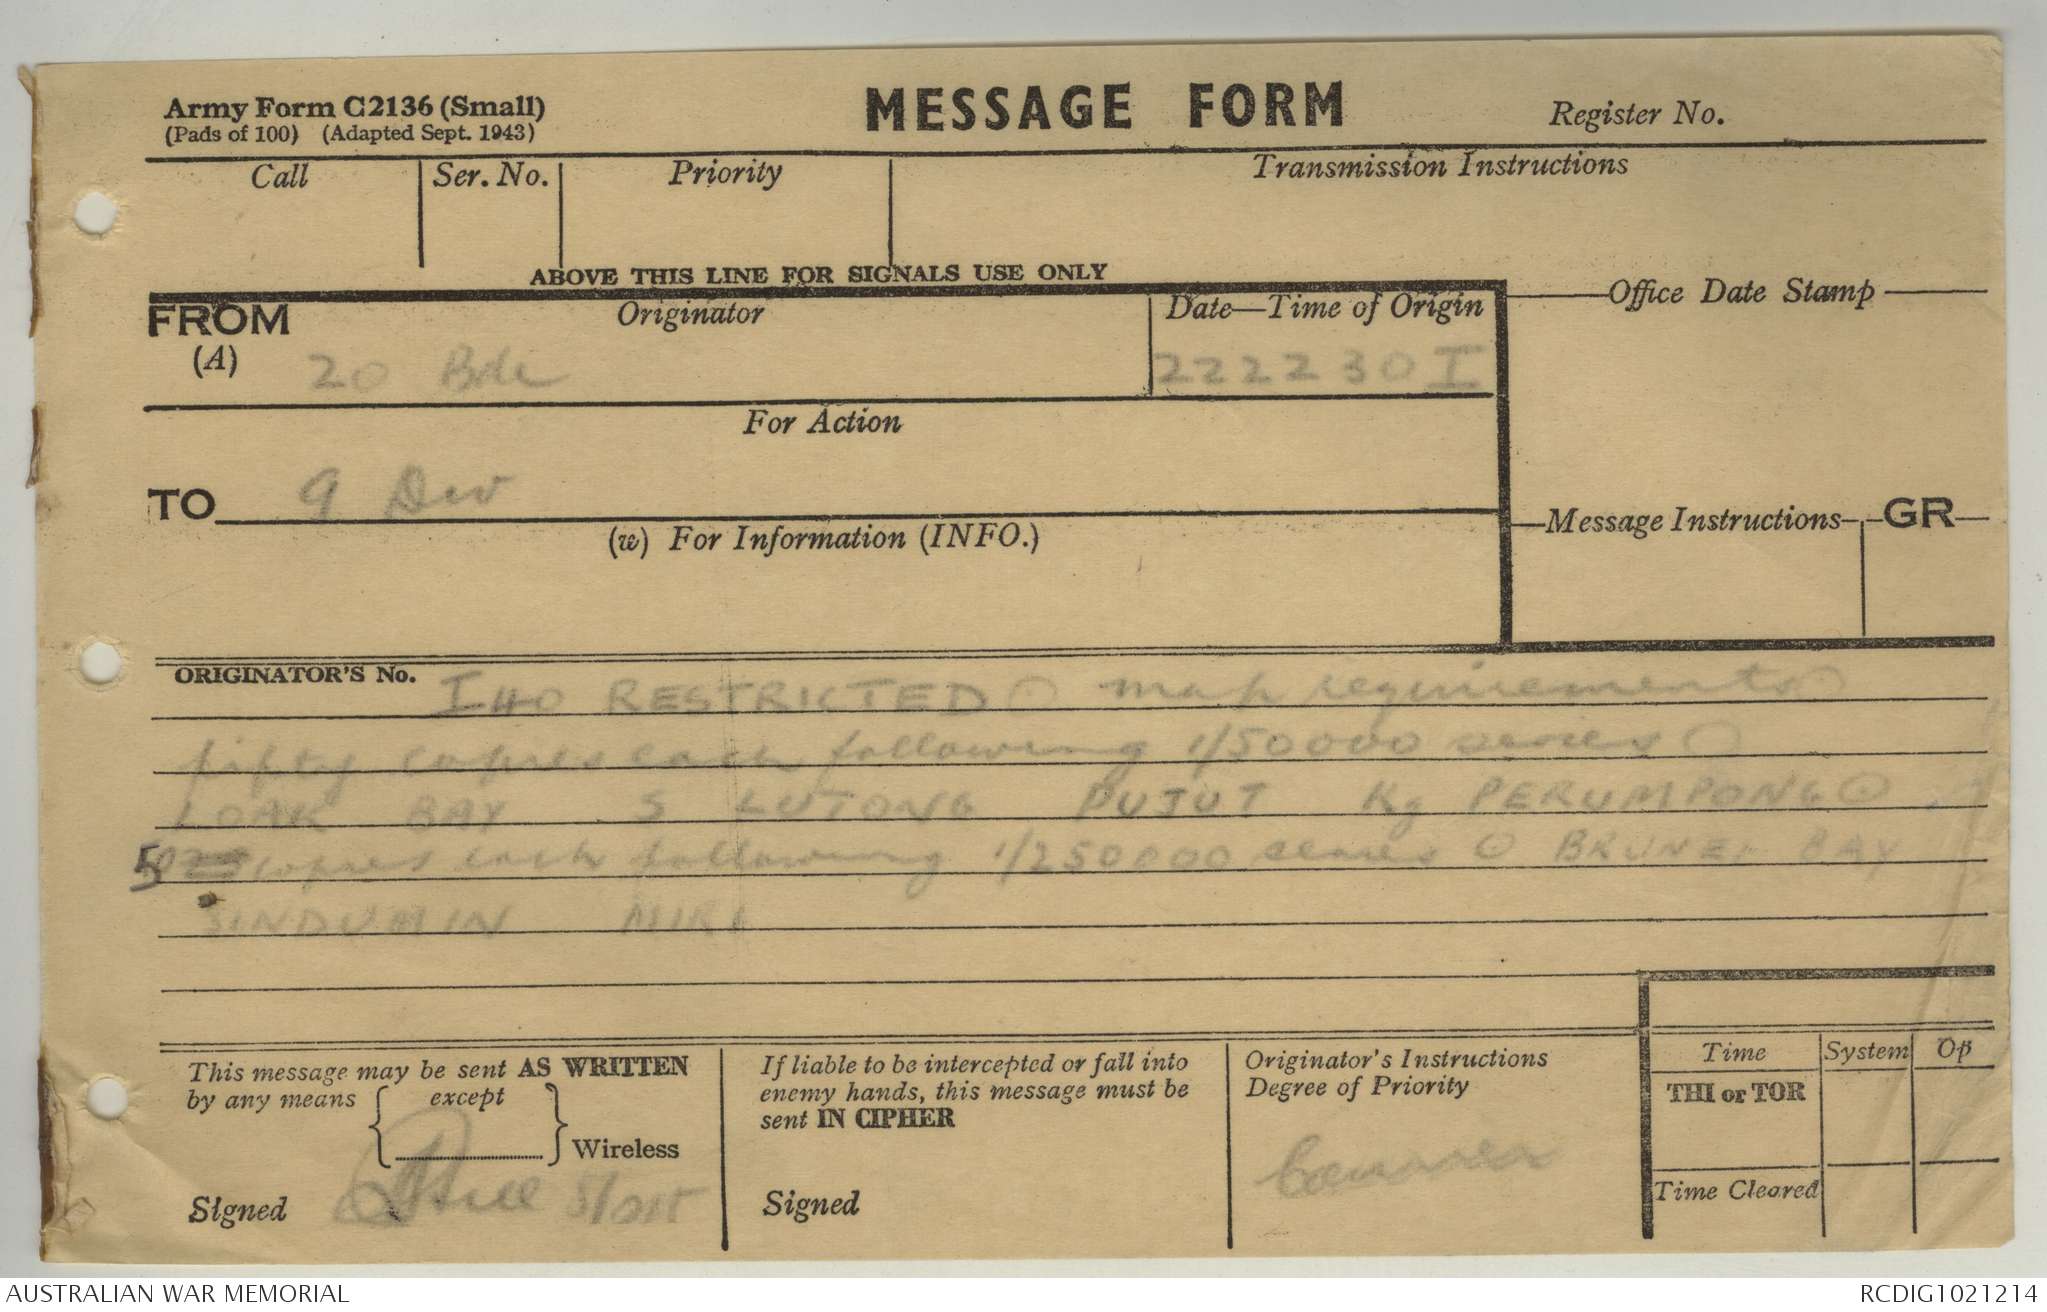 Army Form C2136 (Small)
(Pads of 100) (Adapted Sept. 1943)
MESSAGE FORM
Register No.
Call
Ser. No.
Priority
Transmission Instructions
ABOVE THIS LINE FOR SIGNALS USE ONLY
FROM
(A)
Originator
20 Bde
Date—Time of Origin
222230 I
Office Date Stamp
For Action
TO
9 Div
(w) For Information (INFO.)
Message Instructions
GR
ORIGINATOR'S No.
I40 RESTRICTED ⊙ map requirements ⊙
fifty copies each following 1/50000 series ⊙
LOAK BAY S LUTONG PUJUT Kg PERUMPONG ⊙
50 copies each following 1/250000 series ⊙ BRUNEI BAY
SINDUMIN MIRI
This message may be sent AS WRITTEN
by any means { except } Wireless
Signed
If liable to be intercepted or fall into
enemy hands, this message must be
sent IN CIPHER
Signed
Originator's Instructions
Degree of Priority
Time
System
Op
THI or TOR
Time Cleared
AUSTRALIAN WAR MEMORIAL
RCDIG1021214